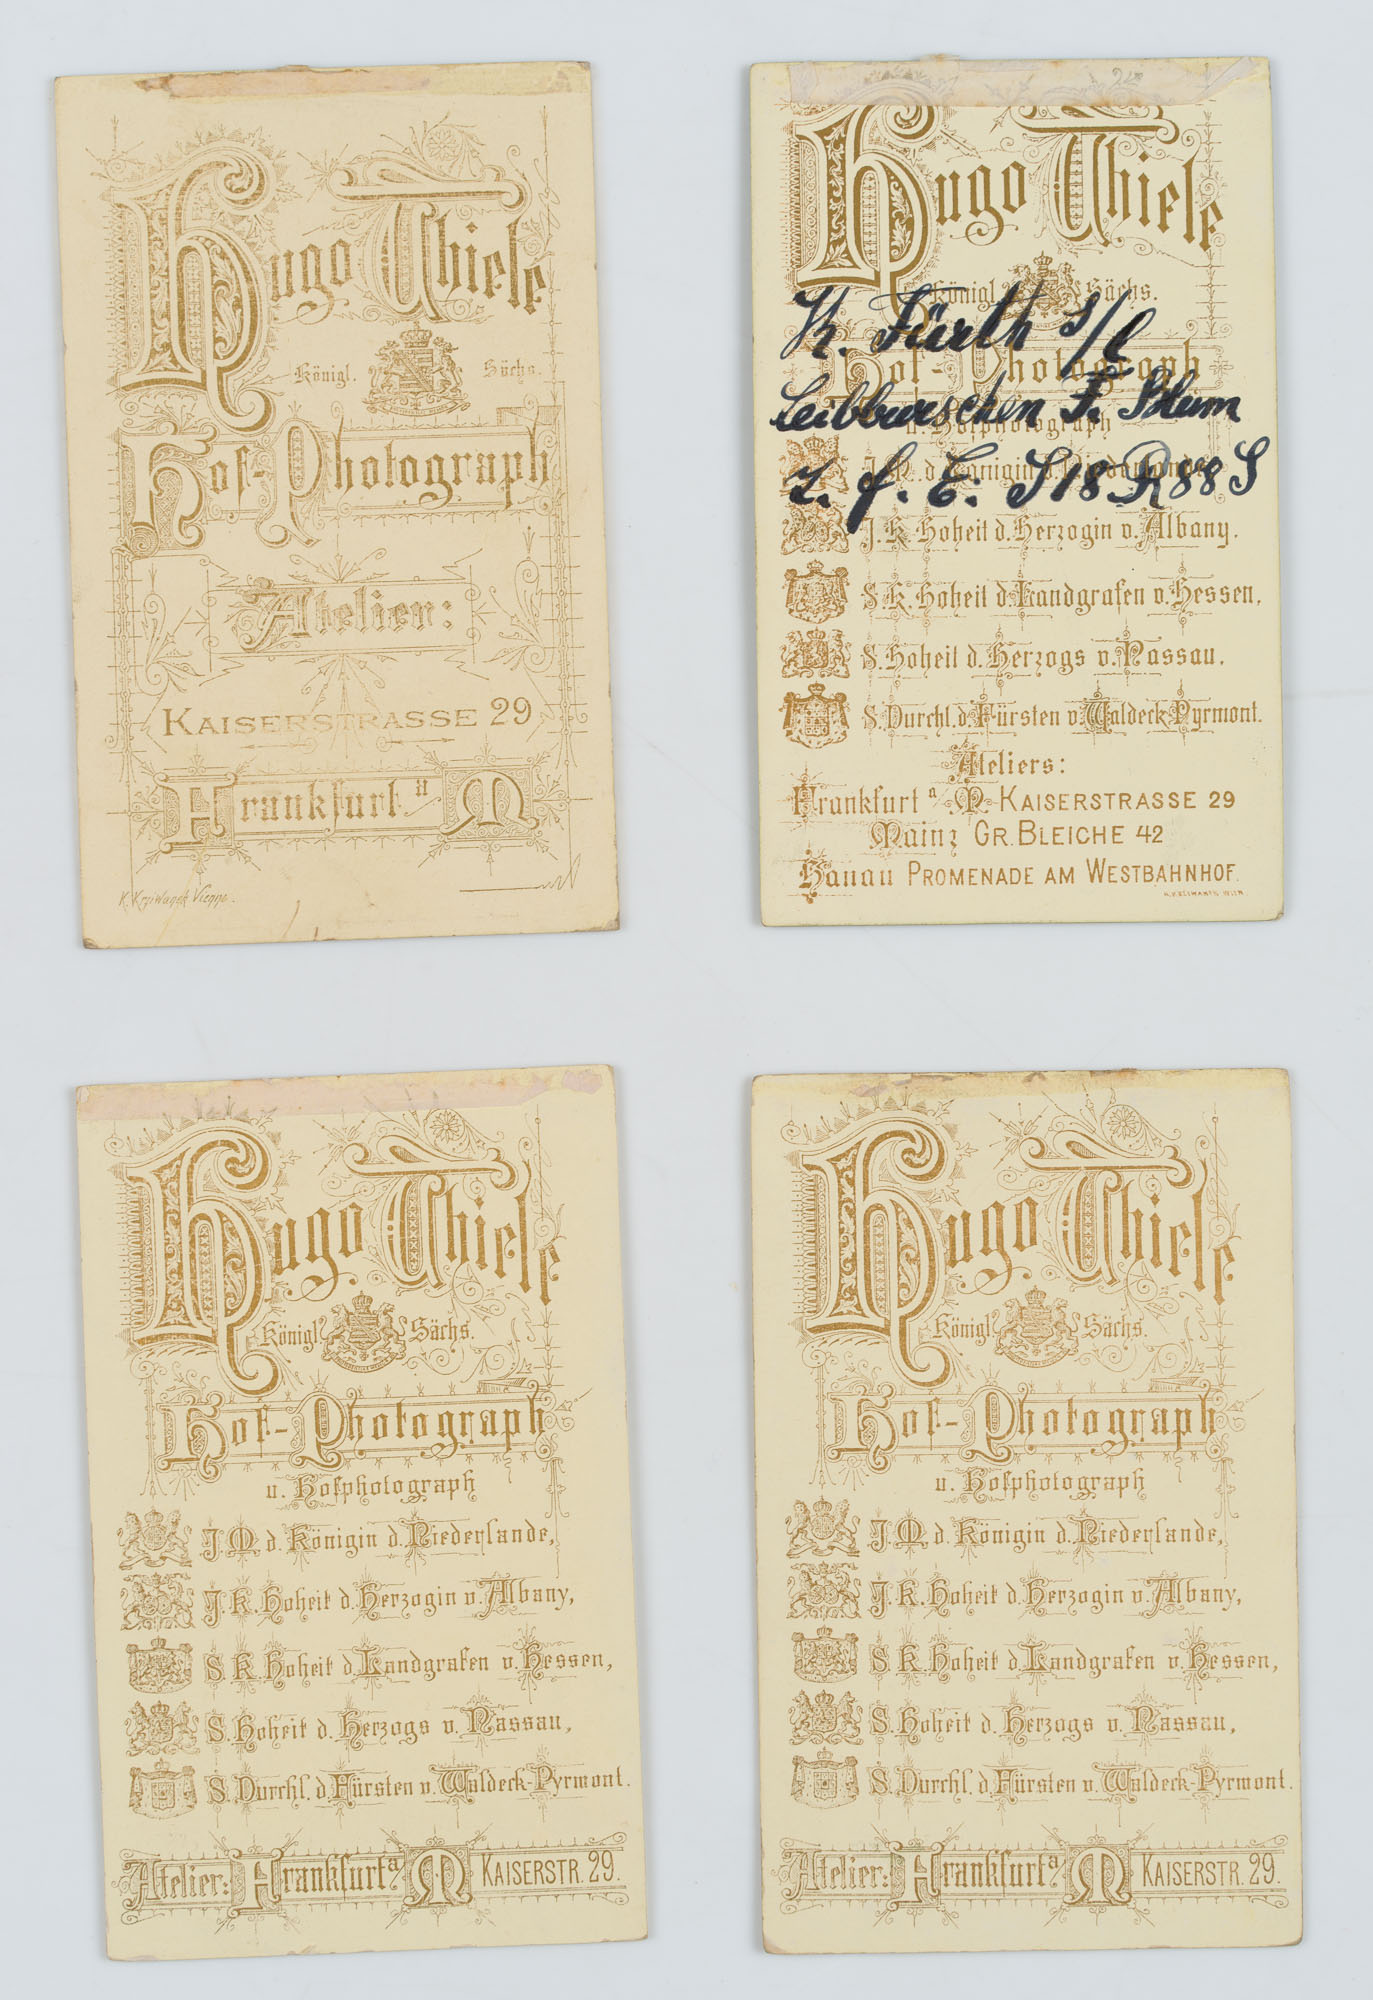 Hugo Thiele
Königl. Sächs.
Hof-Photograph
Atelier:
KAISERSTRASSE 29
Frankfurt a/ M
K. Krziwanek Vienne.
Hugo Thiele
Königl. Sächs.
Hof-Photograph
u. Hofphotograph
K. Fürth s/l
Leibburschen F. Blum
z. f. E. S 18 R 88 S
J. M. d. Königin d. Niederlande,
J. K. Hoheit d. Herzogin v. Albany.
S. K. Hoheit d. Landgrafen v. Hessen,
S. Hoheit d. Herzogs v. Nassau,
S. Durchl. d. Fürsten v. Waldeck-Pyrmont.
Ateliers:
Frankfurt a/ M. KAISERSTRASSE 29
Mainz GR. BLEICHE 42
Hanau PROMENADE AM WESTBAHNHOF.
Hugo Thiele
Königl. Sächs.
Hof-Photograph
u. Hofphotograph
J. M. d. Königin d. Niederlande,
J. K. Hoheit d. Herzogin v. Albany,
S. K. Hoheit d. Landgrafen v. Hessen,
S. Hoheit d. Herzogs v. Nassau,
S. Durchl. d. Fürsten v. Waldeck-Pyrmont.
Atelier: Frankfurt a/ M KAISERSTR. 29.
Hugo Thiele
Königl. Sächs.
Hof-Photograph
u. Hofphotograph
J. M. d. Königin d. Niederlande,
J. K. Hoheit d. Herzogin v. Albany,
S. K. Hoheit d. Landgrafen v. Hessen,
S. Hoheit d. Herzogs v. Nassau,
S. Durchl. d. Fürsten v. Waldeck-Pyrmont.
Atelier: Frankfurt a/ M KAISERSTR. 29.